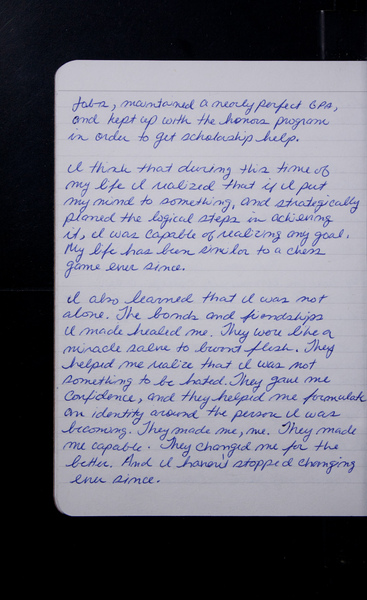 Jobs, maintained a nearly perfect GPA,
and kept up with the honors program
in order to get scholarship help.
I think that during this time of
my life I realized that if I put
my mind to something, and strategically
planed the logical steps in achieving
it, I was capable of realizing any goal.
My life has been similar to a chess
game ever since.
I also learned that I was not
alone. The bonds and friendships
I made healed me. They were like a
miracle salve to burnt flesh. They
helped me realize that I was not
something to be hated. They gave me
confidence, and they helped me formulate
an identity around the person I was
becoming. They made me, me. They made
me capable. They changed me for the
better. And I haven't stopped changing
ever since.